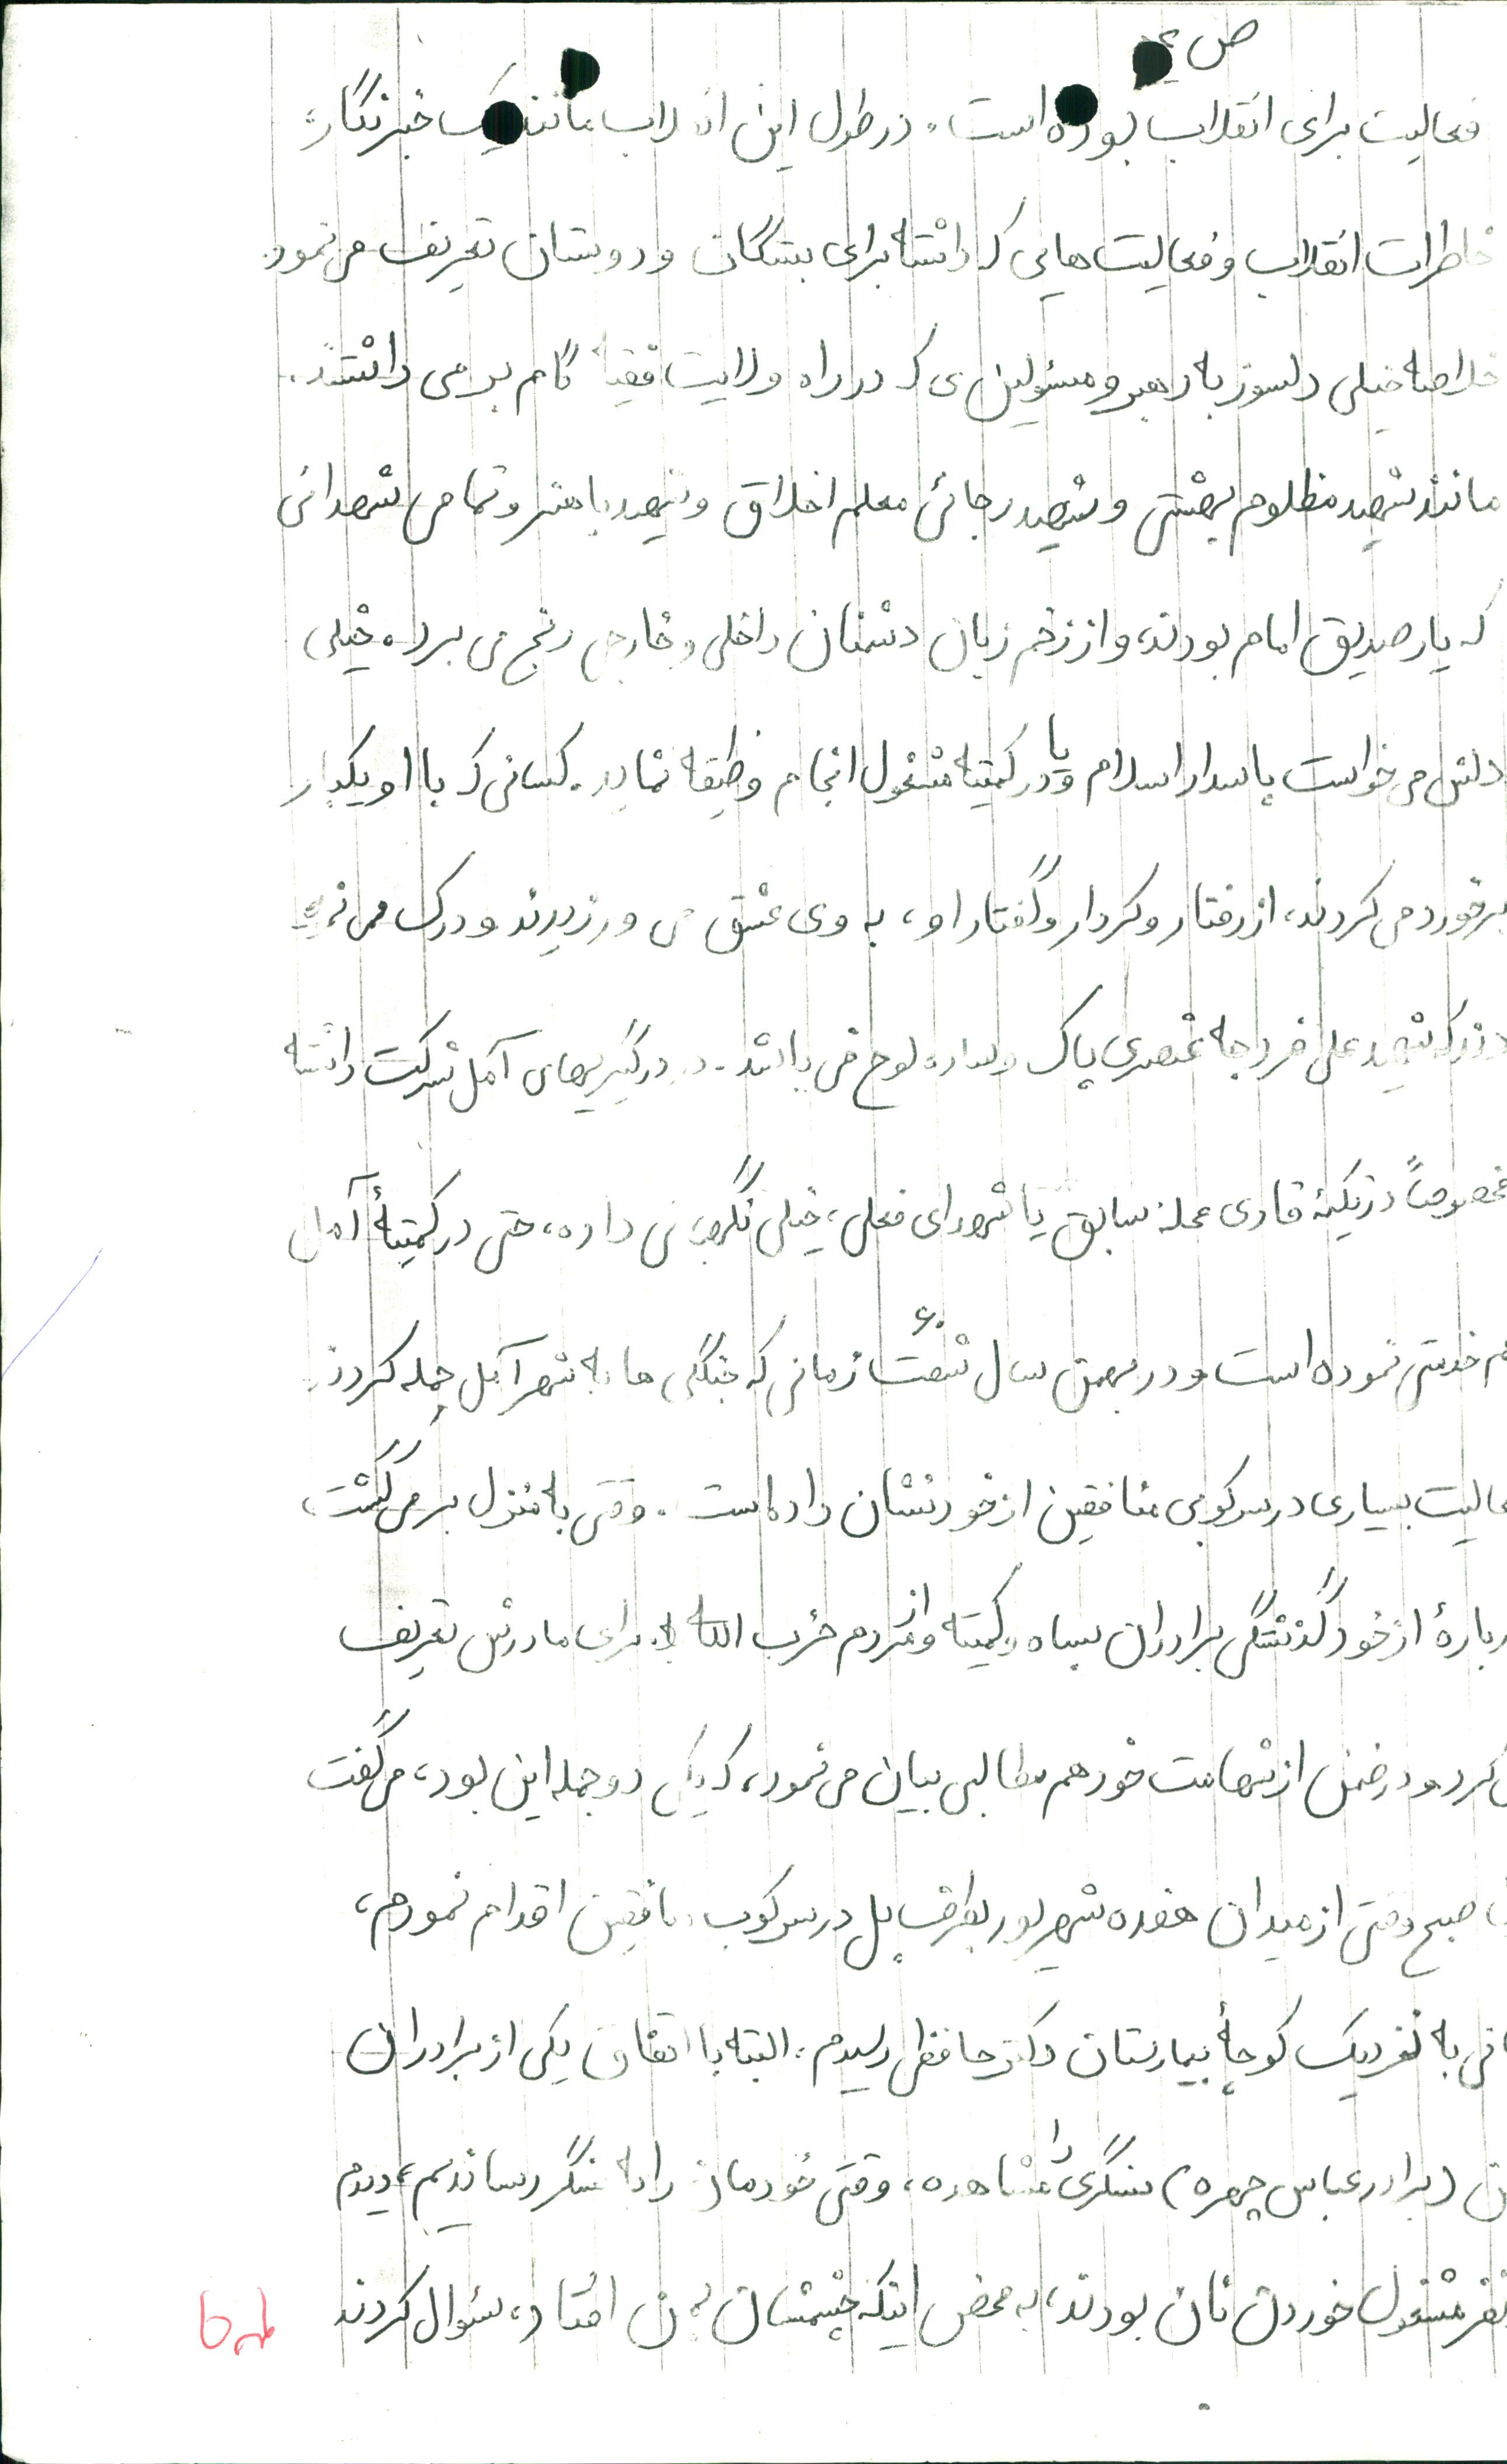 ص
فعالیت برای انقلاب بوده است. در طول این انقلاب مانند یک خبرنگار
خاطرات انقلاب و فعالیت هایی که داشته برای بستگان و دوستان تعریف می نمود.
خلاصه خیلی دلسوز به رهبر و مسئولین ی که در راه ولایت فقیه گام بر می داشتند.
مانند شهید مظلوم بهشتی و شهید رجائی معلم اخلاق و شهید باهنر و تمامی شهدائی
که یار صدیق امام بودند، و از زخم زبان دشمنان داخلی و خارجی رنج می برد. خیلی
دلش می خواست پاسدار اسلام و یا در کمیته مشغول انجام وظیفه نماید. کسانی که با او یکبار
برخورد می کردند، از رفتار و کردار و گفتار او، به وی عشق می ورزیدند و درک می
که شهید علی فرد عنصری پاک و ساده لوح می باشد. در درگیریهای آمل شرکت داشته
مخصوصاً در تکیۀ قادی محله سابق یا شهدای فعلی، خیلی نگهبانی داده، حتی در کمیتۀ آمل
هم خدمتی نموده است و در بهمن سال شصت ۶۰ زمانی که جنگلی ها به شهر آمل حمله کردند
فعالیت بسیاری در سرکوبی منافقین از خود نشان داده است. وقتی به منزل بر می گشت،
دربارۀ از خود گذشتگی برادران سپاه و کمیته و از مردم حزب الله برای مادرش تعریف
می کرد و در ضمن از شهامت خود هم مطالبی بیان می نمود، که یکی دو جمله این بود، می گفت
صبح وقتی از میدان هفده شهریور بطرف پل در سرکوب منافقین اقدام نمودم،
زمانی به نزدیک کوچۀ بیمارستان دکتر حافظی رسیدم، البته با اتفاق یکی از برادران
(برادر عباس چهره) سنگری را مشاهده، وقتی خودمان را به سنگر رساندیم، دیدم
نفر مشغول خوردن نان بودند، به محض اینکه چشمشان به من افتاد، سئوال کردند